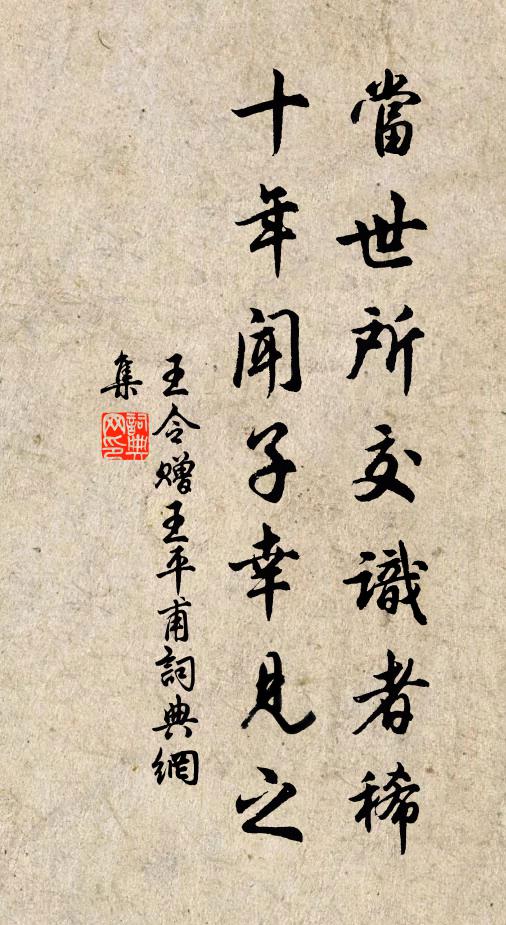 當世所交識者稀
十年闻子幸見之
王令赠王平甫詞典網
集
詞典网印